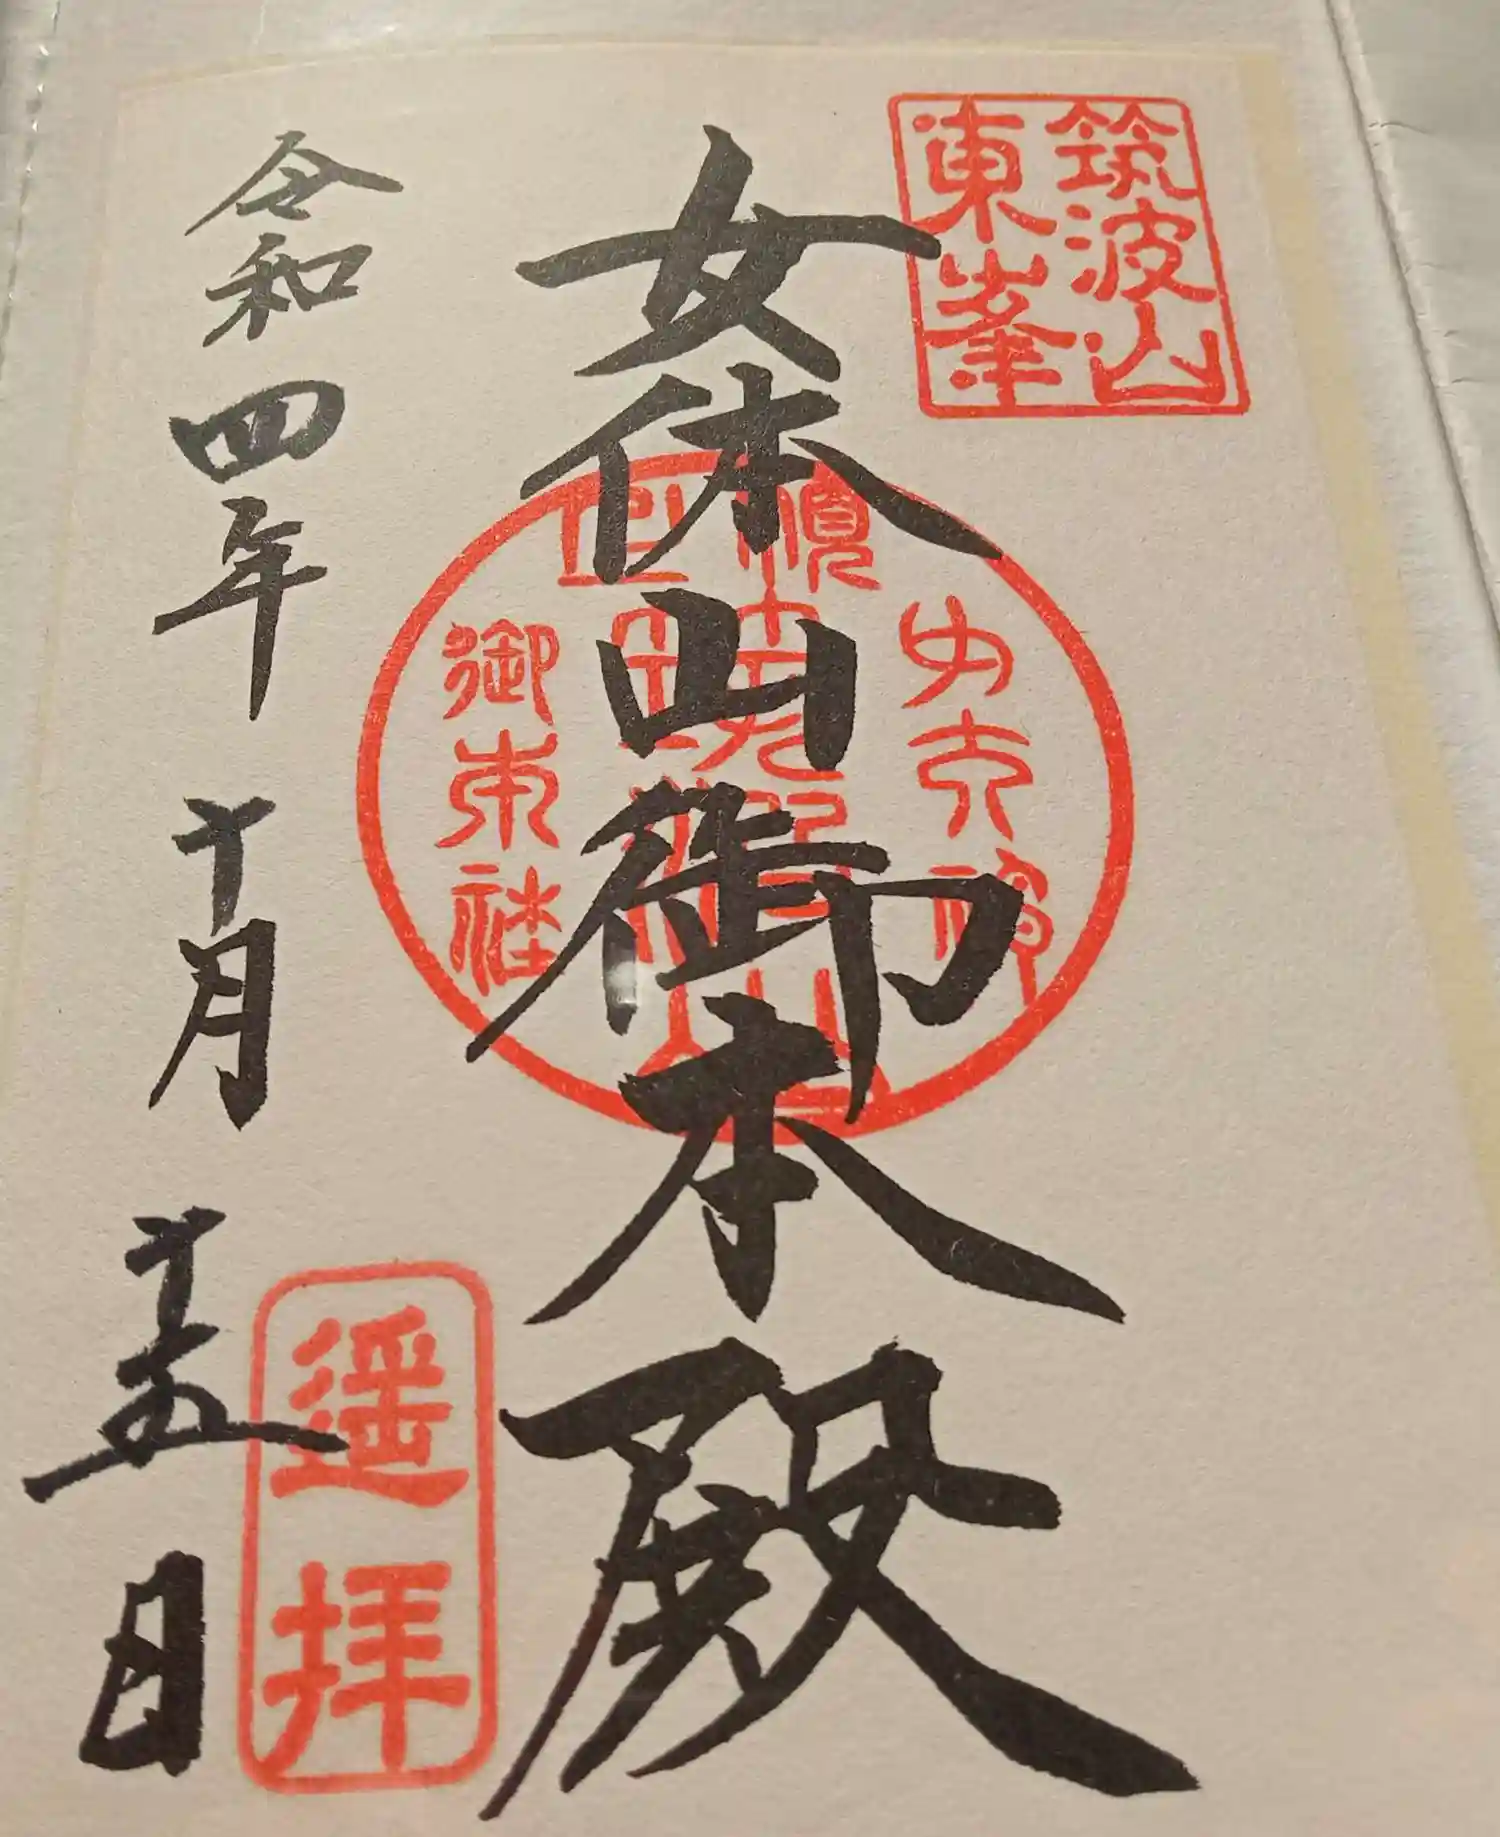 筑波山
東峯
女体山御本殿
御本社
遥拝
令和四年十月十五日